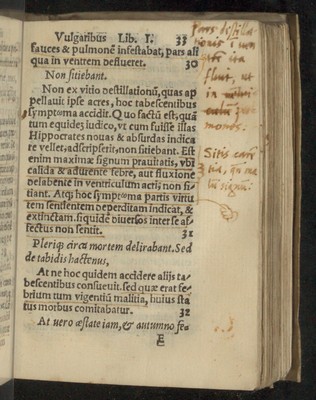 Vulgaribus Lib. I. 33
fauces & pulmonē infestabat, pars ali
qua in ventrem deflueret. 30
Non sitiebant.
Non ex vitio destillationū, quas ap
pellauit ipse acres, hoc tabescentibus
symptoma accidit. Quo factū est, quā
tum equidē iudico, vt cum fuisse illas
Hippocrates notas & absurdas indica
te vellet, adscripserit, non sitiebant. Est
enim maximæ signum prauitatis, vbi
calida & adurente febre, aut fluxione
delabente in ventriculum acri, non si-
tiant. Atq; hoc symptoma partis virtu
tem sentientem deperditam indicat, &
extinctam. siquidē diuersos inter se af
fectus non sentit. 31
Pleriq; circa mortem delirabant. Sed
de tabidis hactenus,
At ne hoc quidem accidere alijs ta-
bescentibus consueuit. sed quæ erat fe-
brium tum vigentiū malitia, huius sta
tus morbus comitabatur. 32
At vero æstate iam, & autumno fea
E
pars destilla
tionis
ita
fluit, ut
in
Sitis care
tia,
signū.